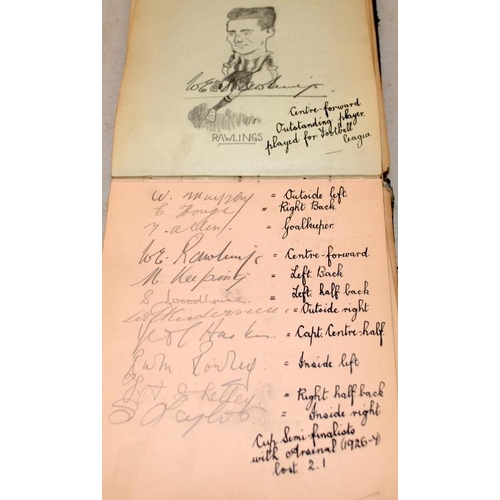 W.E. Rawlings.
RAWLINGS
Centre-forward
Outstanding player.
played for Football
League.
W. Murphy = Outside left.
E Hough = Right Back
T. Allen. = Goalkeeper.
W.E. Rawlings. = Centre-forward
M. Keeping. = Left. Back
S Woodhouse = Left half back
= Outside right
= Capt. Centre-half.
= Inside left
= Right half back
S Taylor = Inside right
Cup Semi-finalists
with Arsenal (1926-7)
lost 2.1